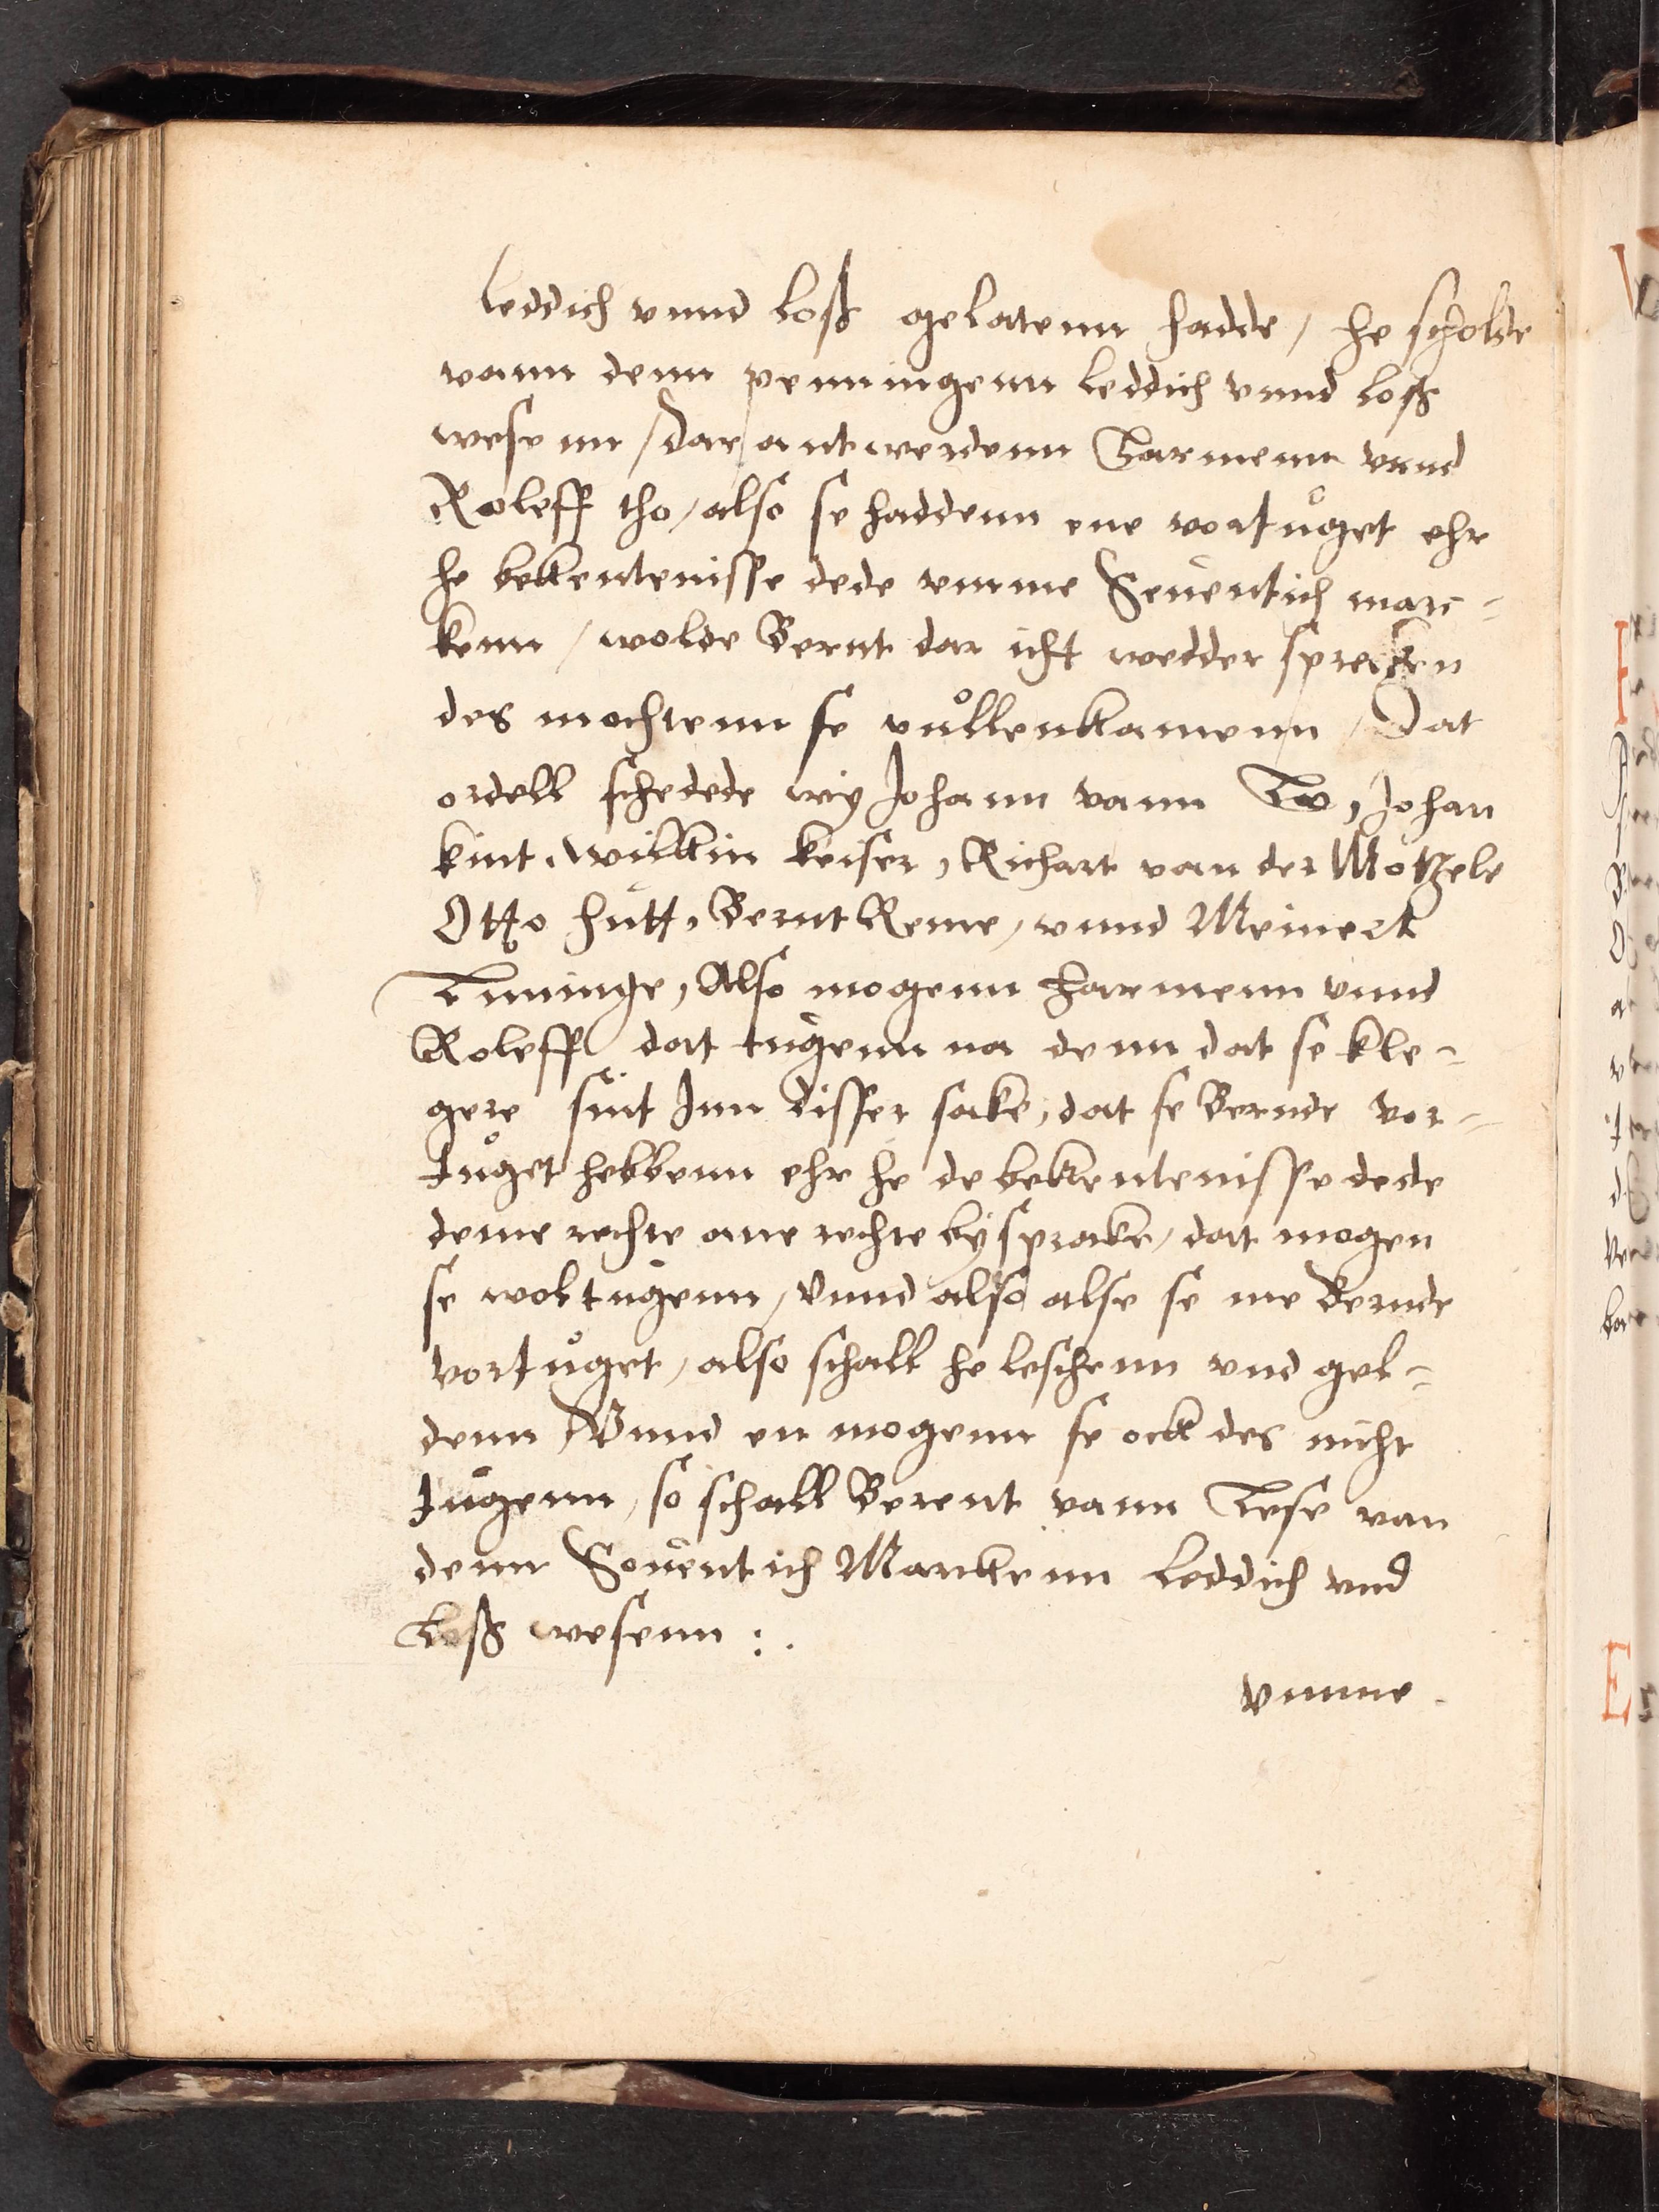 leddich vnnd loß gelatenn hadde / he scholde
vann denn penningenn leddich vnnd loß
wesenn / dar antwerdenn Harmenn vnnd
Roleff tho / also se haddenn ene vortůget ehr
he bekkentenisse dede vmme Seuentich marc-
kenn / wolde Bernt dar icht wedder sprecken
des mochtenn se vůllenkkamenn / Dat
ordell schedede wy Johann vann Lo, Johan
kint, Wilkin keiser, Richart van der Motzele
Otto hütt, Bernt Reme, vnnd Meinerk
Luninge, Also mogenn Harmenn vnnd
Roleff dat tugenn na denn dat se kle-
gere sint Inn disser sake, dat se Bernde vor-
tůget hebbenn ehr he de bekkentenisse dede
deme rechte ane rechte bysprake, dat mogen
se wol tugenn, Vnnd also alse se me Bernde
vortůget, also schall he leschenn vnd gel-
denn Vnnd en mogenn se ock des nicht
tugenn, so schall Berent vann Lese van
denn Souentich Marckenn leddich vnd
Loß wesenn :.
vmme